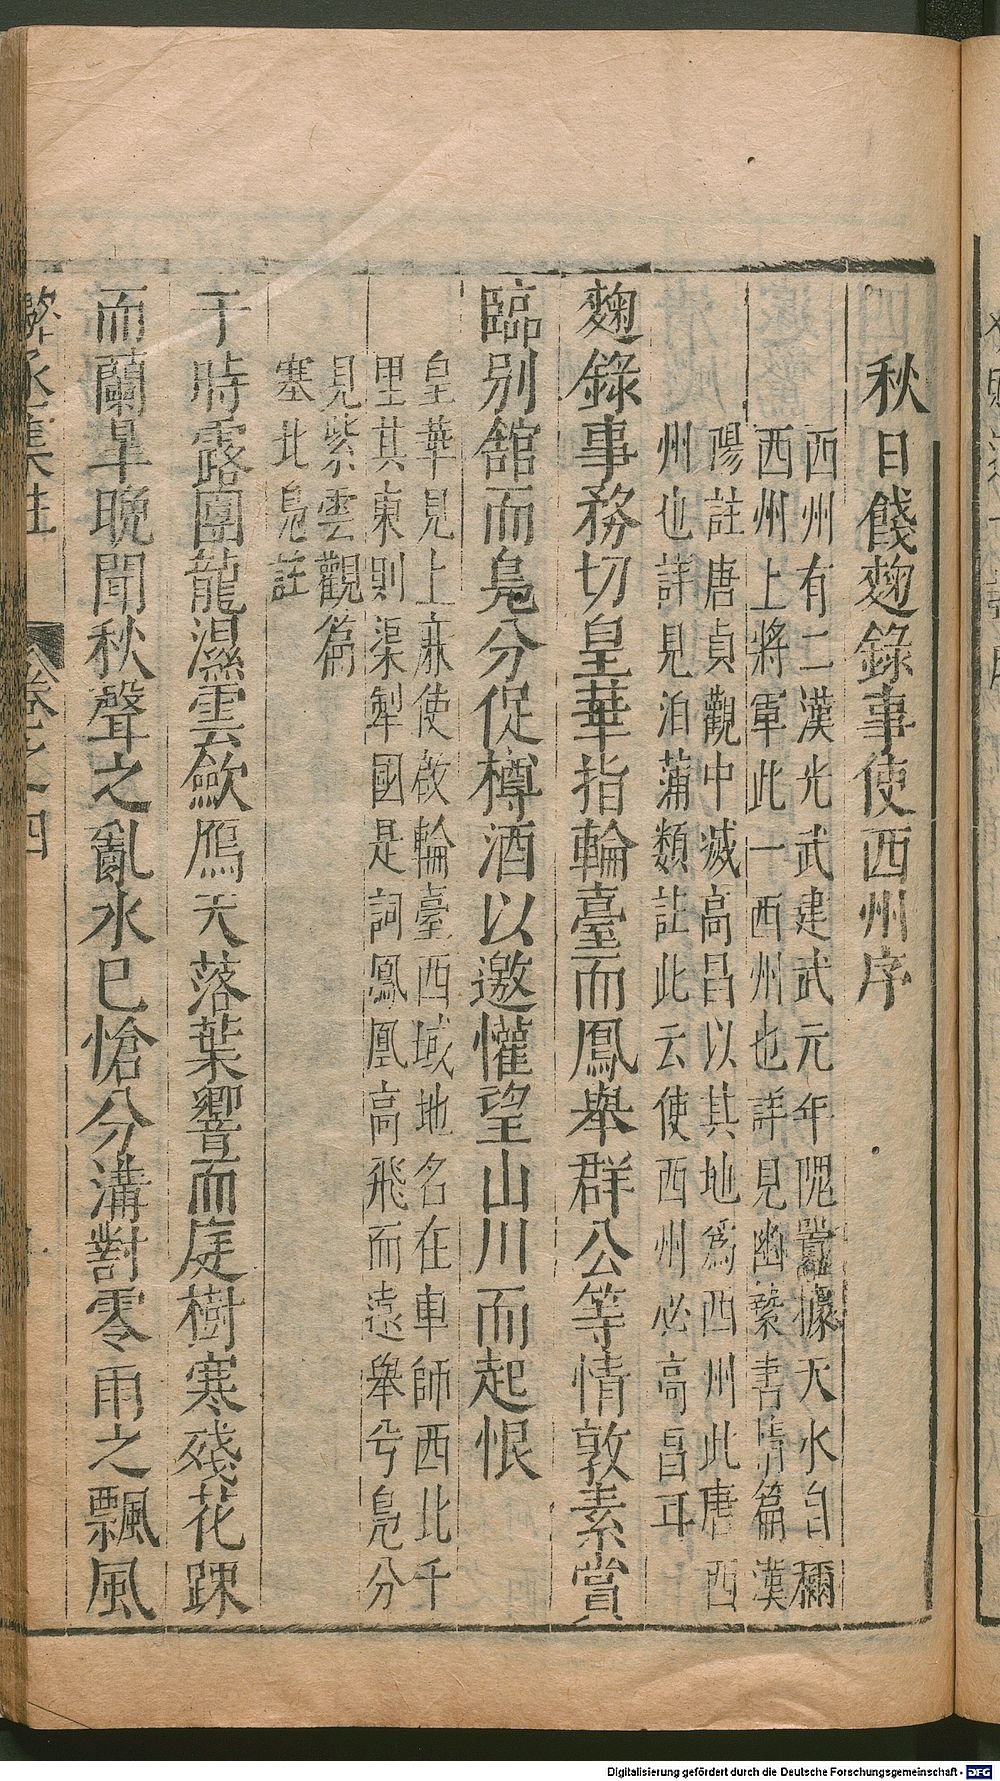 秋日餞麴錄事使西州序
西州有二漢光武建武元年隗囂據天水自稱
西州上將軍此一西州也詳見幽縶書情篇漢
陽註唐貞觀中滅高昌以其地爲西州此唐西
州也詳見泊蒲類註此云使西州必高昌耳
麴錄事務切皇華指輪臺而鳳舉群公等情敦素賞
臨別舘而鳧分促樽酒以邀懽望山川而起恨
皇華見上庶使啟輪臺西域地名在車師西北千
里其東則渠犁國是詞鳳凰高飛而遠舉兮鳧分
見紫雲觀篇
塞北鳧註
于時露團龍濕雲歛鴈天落葉響而庭樹寒殘花踈
而蘭皐晩聞秋聲之亂水已愴分溝對零雨之飄風
丞集註
卷之四
Digitalisierung gefördert durch die Deutsche Forschungsgemeinschaft · DFG